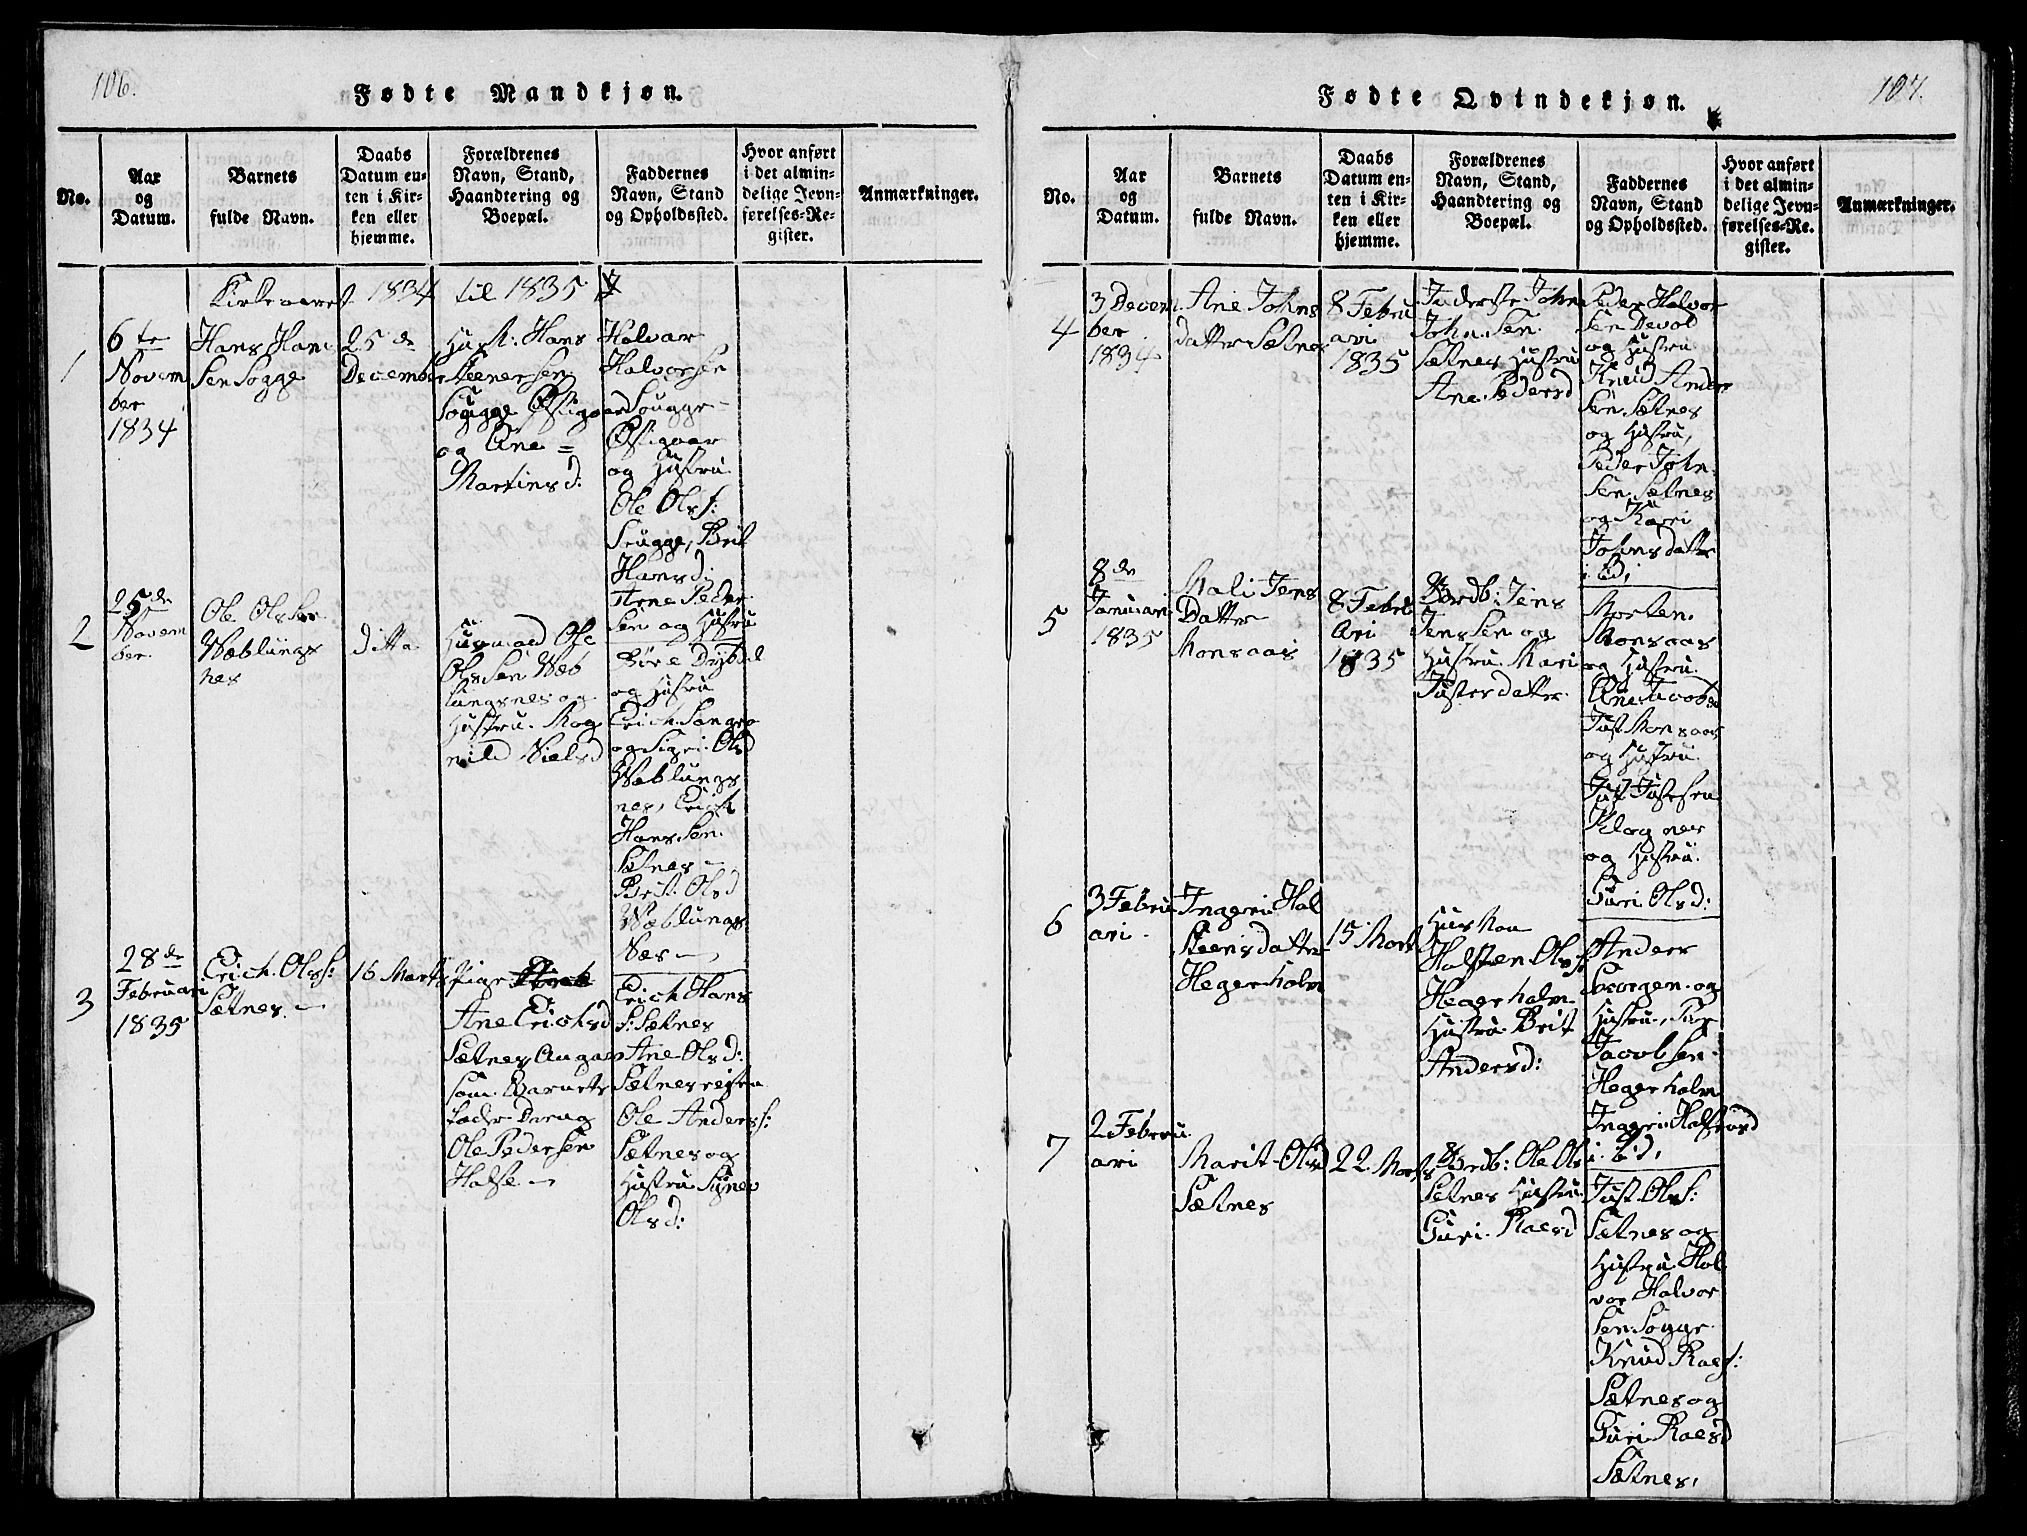 106.
Fødte Mandkjøn.
No.
Aar
og
Datum.
Barnets
fulde Navn.
Daabs
Datum en-
ten i Kir-
ken eller
hjemme.
Forældrenes
Navn, Stand,
Haandtering og
Boepæl.
Faddernes
Navn, Stand
og Opholdssted.
Hvor anført
i det almin-
delige Jevn-
førelses-Re-
gister.
Anmærkninger.
Kirkeaaret 1834 til 1835
1
6te
Novem
ber
1834
Hans Han
Sen Sogge
25de
December
Husm: Hans
Steenersen
Sougge Østigaard
og Ane =
Martinsd:
Halvar
Halvorsen
Sougge
Østigaar
og Hustru
Ole Olsf:
Sougge, Brit
Hansd:
Arne Peder
Sen og Hustru
2
25de
Novem
ber.
Ole OlsSen
Wæblungs
nes
ditto
Husmand Ole
OlsSen Wæb
lungsnes og
Hustru. Rag
nild Nielsd
Børe Drybdal
og Hustru
Erich Sangro
og Sigri Olsd
Wæblungs
nes, Erich
HansSen.
Sætnes
Brit Olsd
Wæblungs
Næs
3
28de
Februari
1835
Erich Olsf:
Sætnes.
16 Marts
Pige
Ane Erichsd
Sætnes Angaer
som Barnets
fader Dreng
Ole Pedersen
Halse
Erich Hans
f: Sætnes
Ane Olsd:
Sætnes
Ole Andersf:
Sætnes og
Hustru Synev
Olsd:
107.
Fødte Qvindekjøn.
No.
Aar
og
Datum.
Barnets
fulde Navn.
Daabs
Datum en-
ten i Kir-
ken eller
hjemme.
Forældrenes
Navn, Stand,
Haandtering og
Boepæl.
Faddernes
Navn, Stand
og Opholdssted.
Hvor anført
i det almin-
delige Jevn-
førelses-Re-
gister.
Anmærkninger.
4
3 Decem
ber
1834
Ane Johns
datter Sætnes
8 Febru
ari
1835
Inderste John
JohnSen
Sætnes Hustru
Ane Pedersd
Peder Halvor
Sen Devold
og Hustru
Knud Ander
Sen Sætnes
og Hustru,
Peder John
Sen Sætnes
og Kari
Johnsdatter
i bd;
5
8de
Januari
1835
Mali Jens
Datter
Monsaas
8 Febru
Ari
1835
Gordb: Jens
JensSen og
Hustru Mari
Justersdatter
Morten
Monsaas
og Hustru
Ane Jacobsd
Just Monsaas
og Hustru
Just Justesen
Klognes
og Hustru
Guri Olsd:
6
3 Febru
ari
Ingeri Hal
Steensdatter
Hegerholm
15 Marts
HusMan
Halsten Olsf:
Hegerholm
Hustru Brit
Andersd:
Anders
Soorgen og
Hustru,
Jacobsen
Hegerholm
Ingeri Halstensd
i bd;
7
2 Febru
ari
Marit Olsd
Sætnes
22 Marts
Gordb: Ole Ols
Sætnes Hustru
Guri Roaesd
Just Olsf:
Sætnes og
Hustru Hal
vor Halvor
Sen Sogge
Knud Roaesf:
Sætnes og
Guri Roaesd
Sætnes,